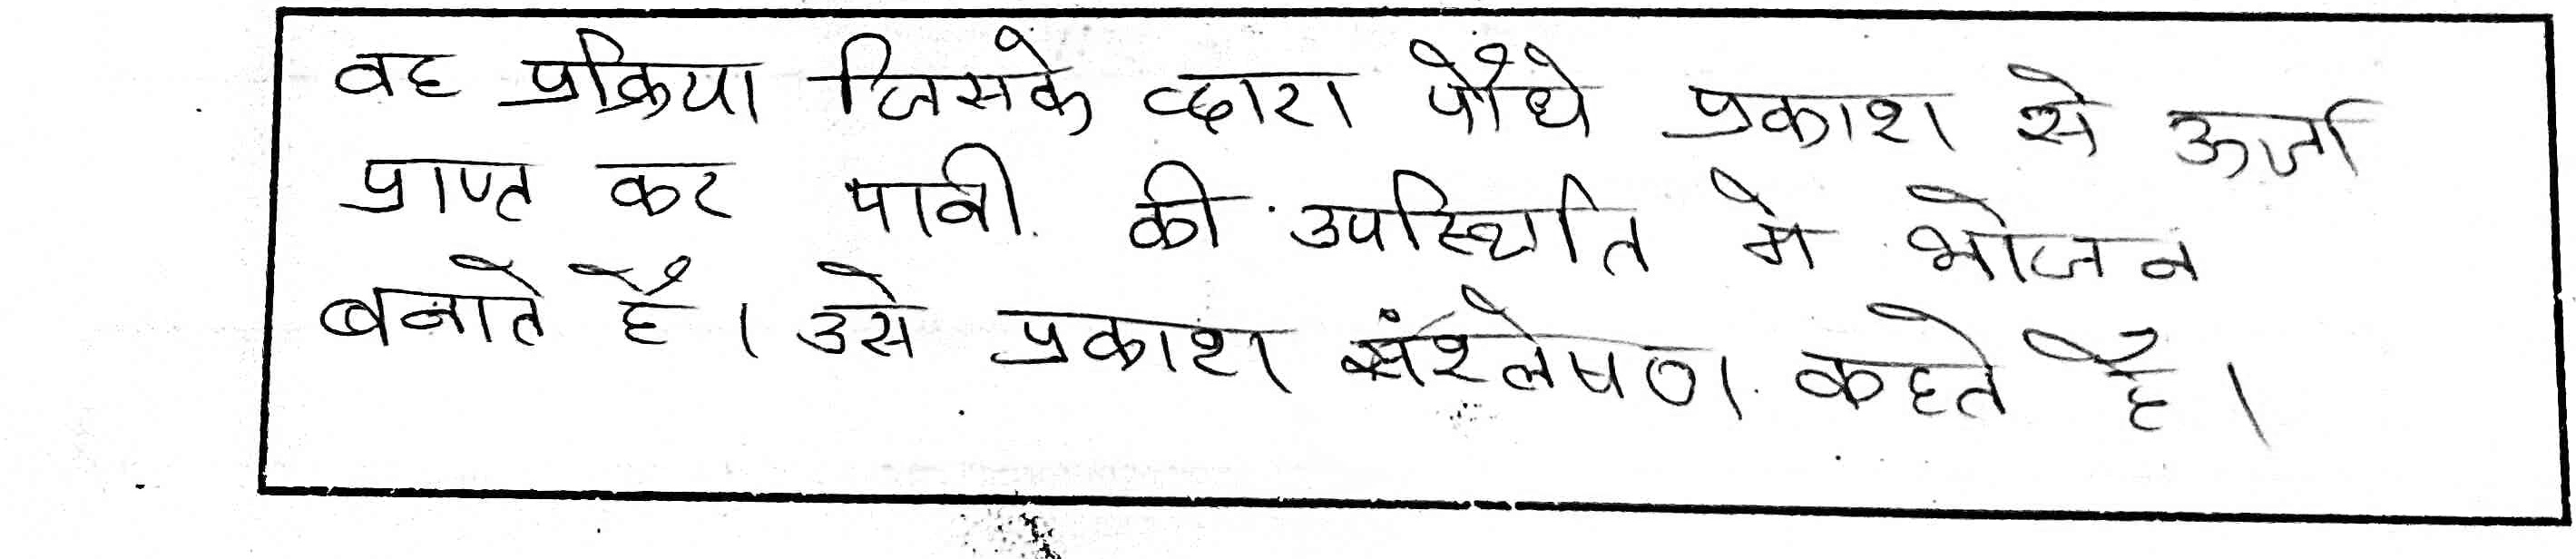 वह प्रक्रिया जिसके द्वारा पौधे प्रकाश से ऊर्जा
प्राप्त कर पानी की उपस्थिति मे भोजन
बनाते है। उसे प्रकाश संश्लेषण कहते है।